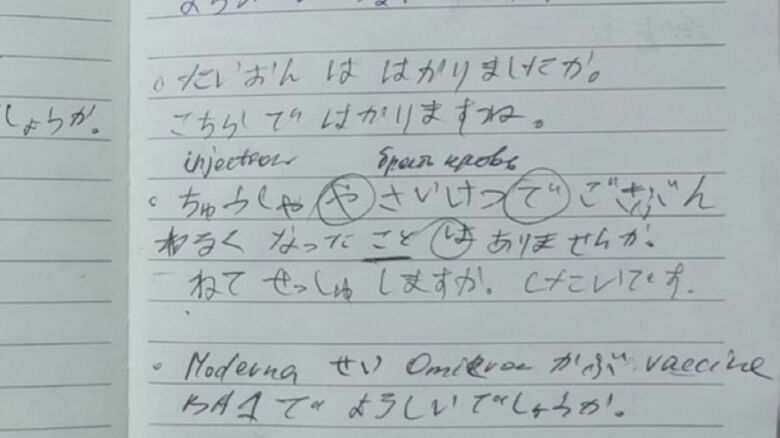 しょうか。
◦ たいおん は はかりましたか。
こちらで はかりますね。
injection брать кровь
◦ ちゅうしゃ や さいけつ で ごきぶん
わるく なった こと は ありませんか。
ねて せっしゅ しますか。 したいです。
◦ Moderna せい Omikron かぶ vaccine
BA1 で ようしいでしょうか。